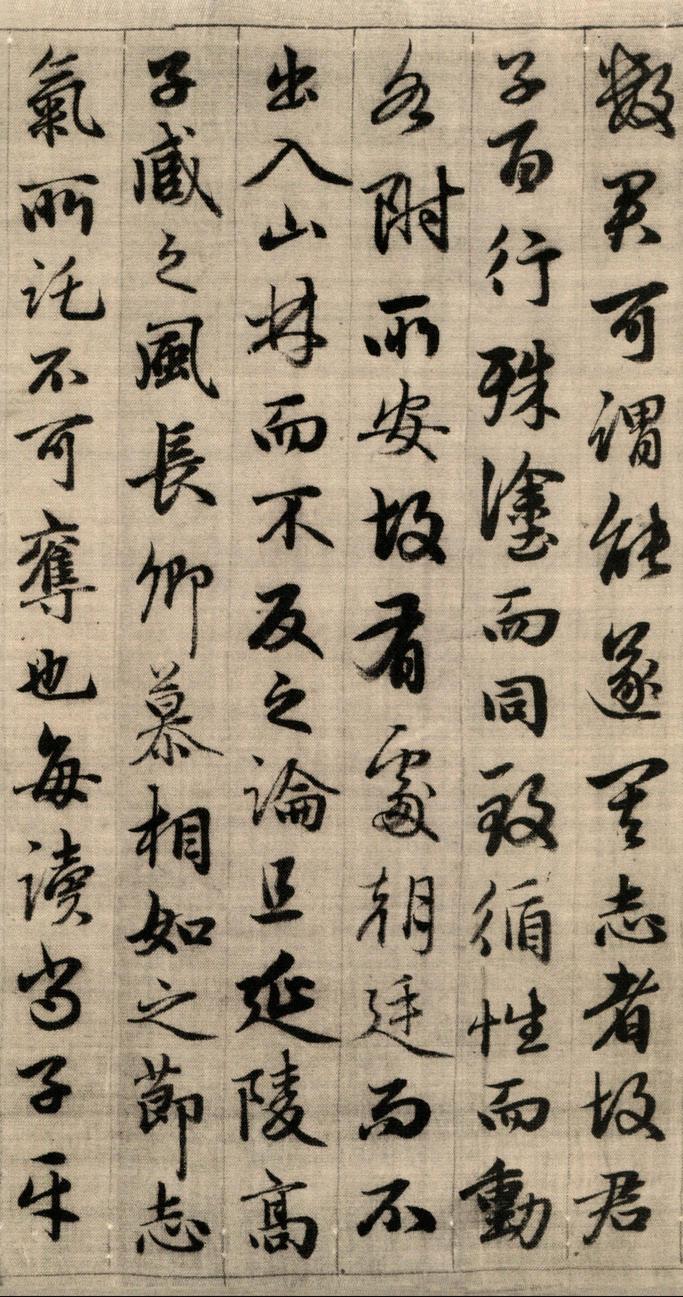 數君可謂能遂其志者故君
子百行殊塗而同致循性而動
各附所安故有處朝廷而不
出入山林而不反之論且延陵高
子臧之風長卿慕相如之節志
氣所託不可奪也每讀尚子平